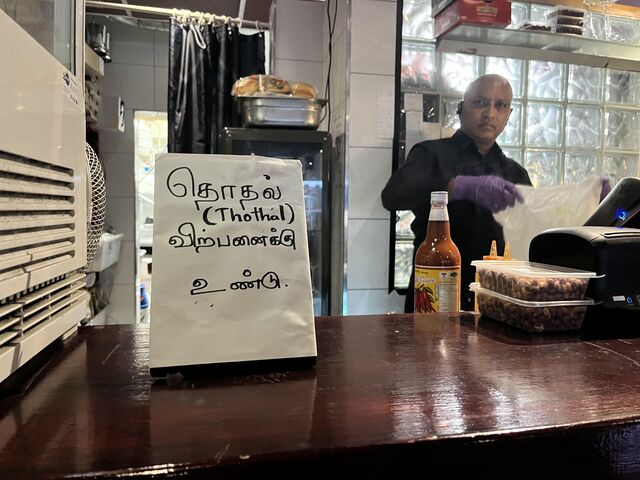 தொதல்
(Thothal)
விற்பனைக்கு
உண்டு.